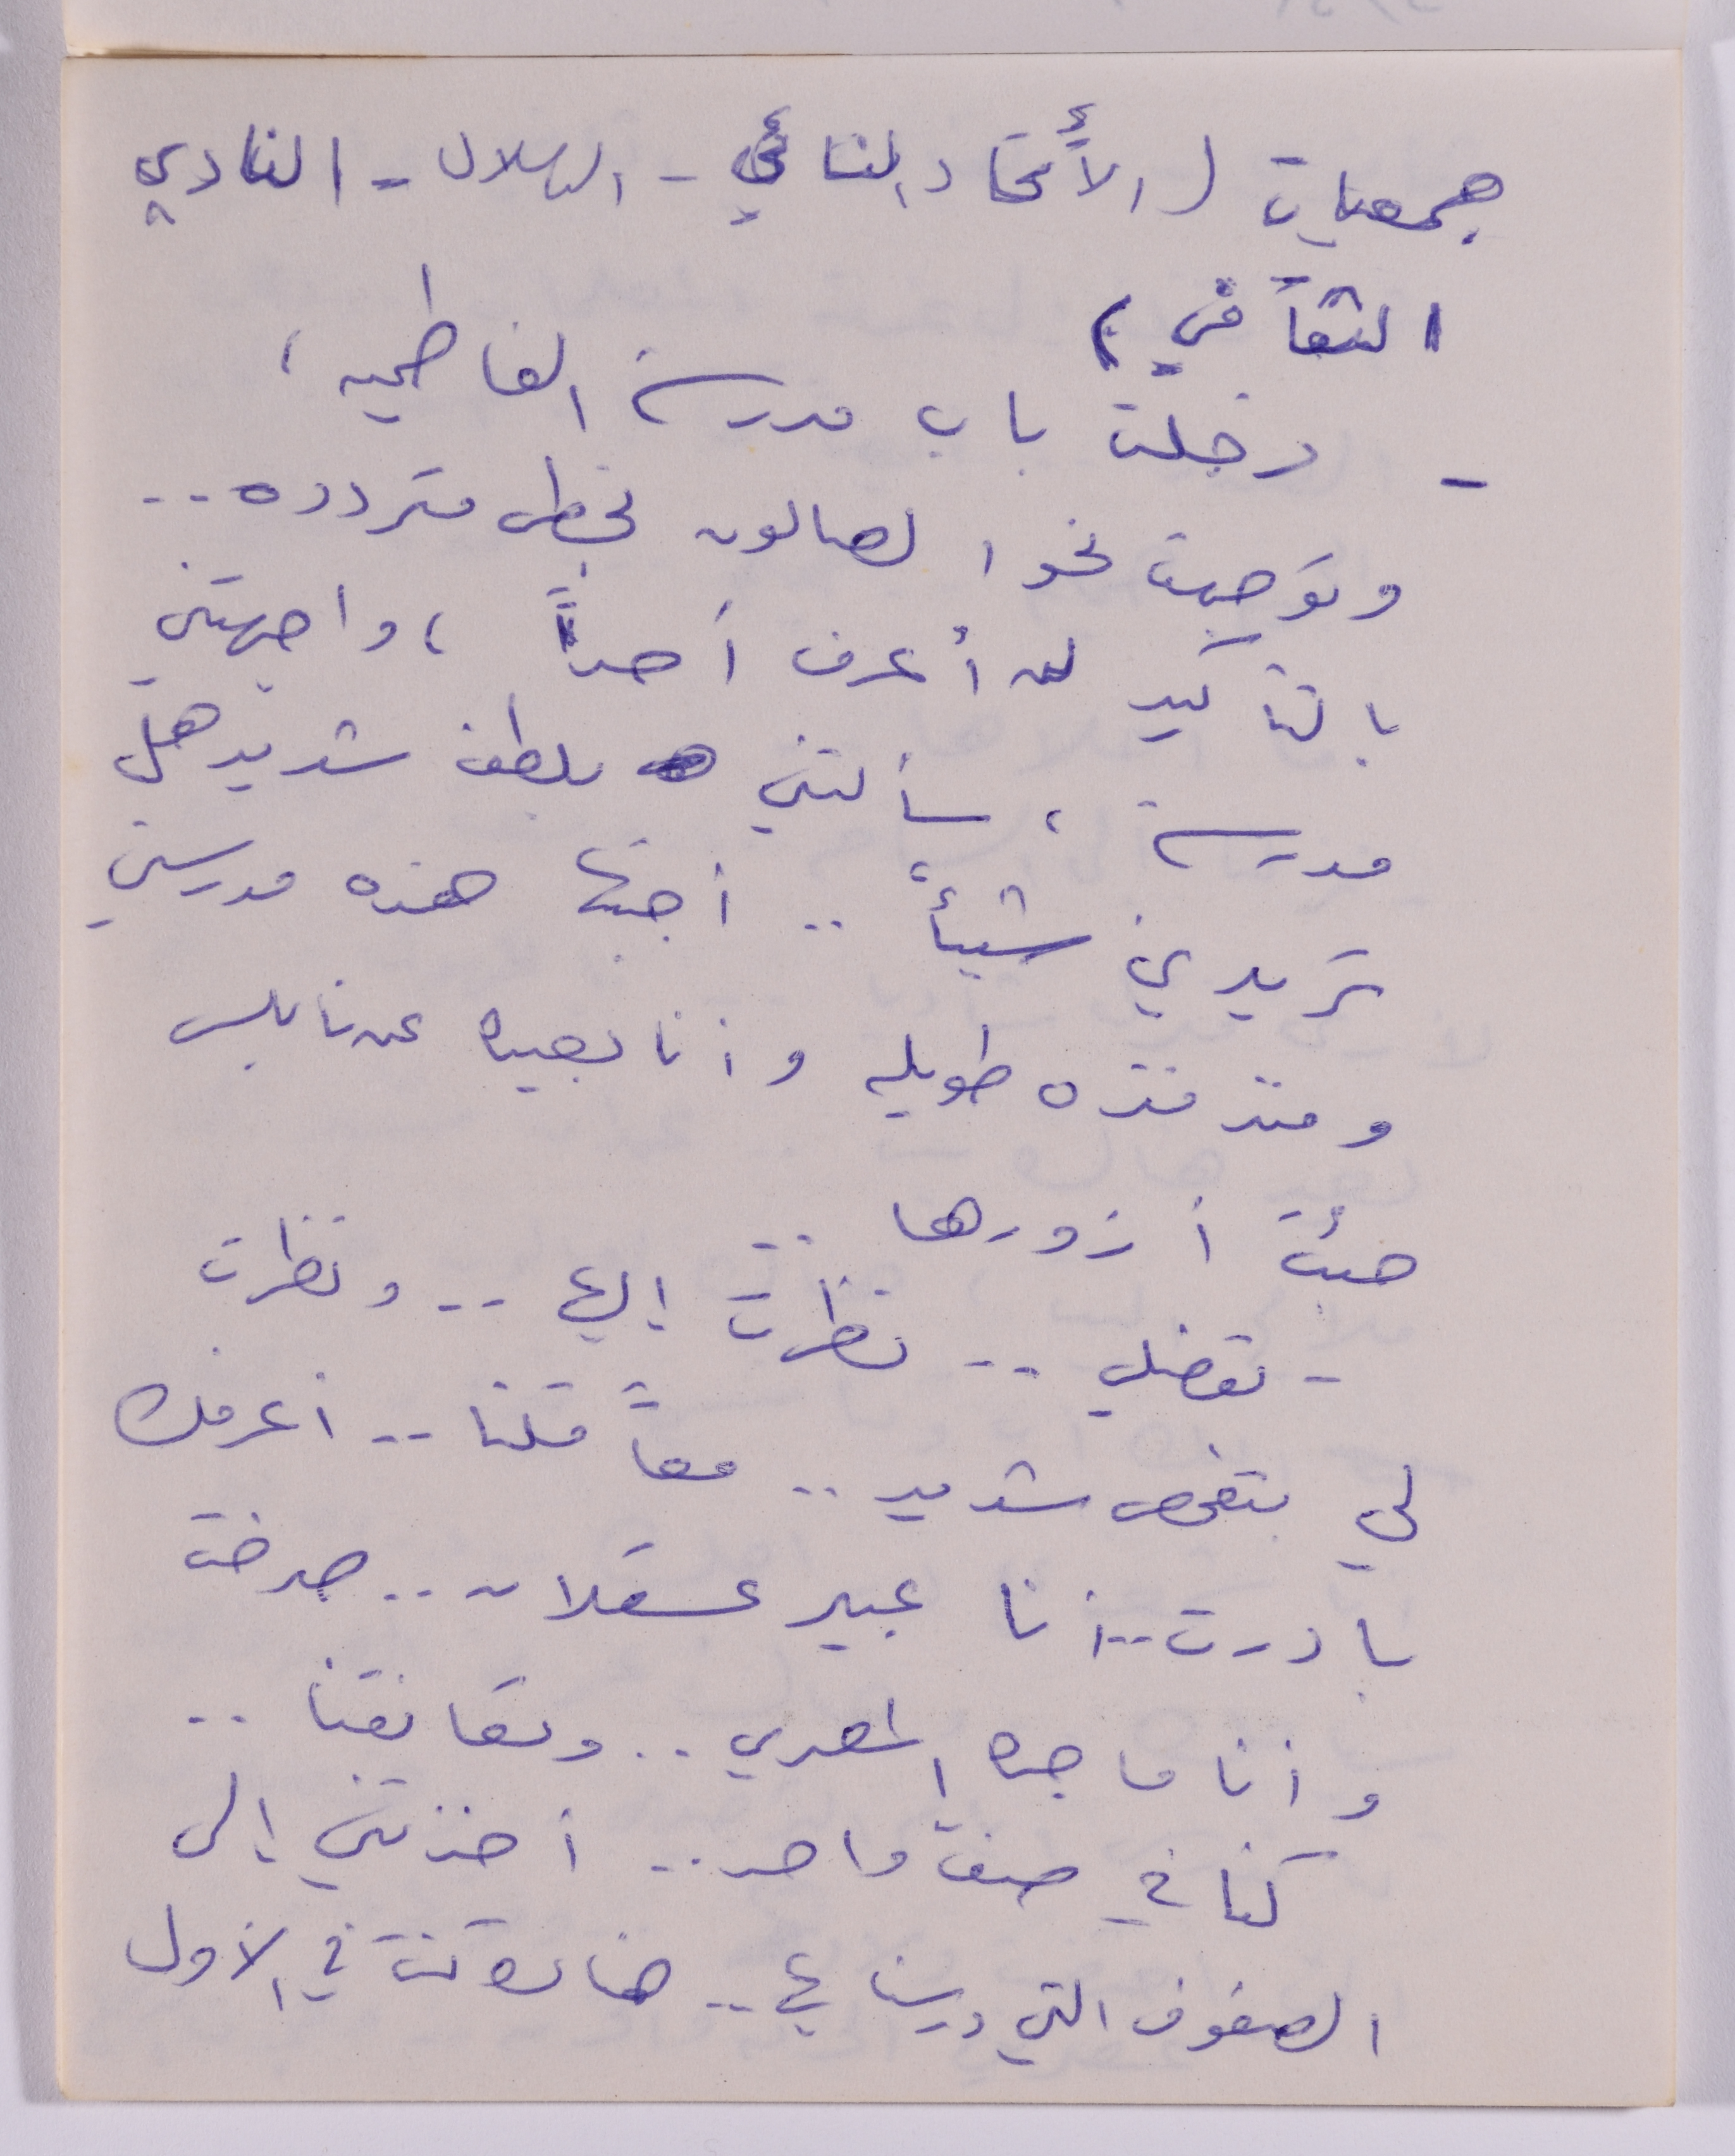 جمعيات (الأتحاد النسائي - الهلال - النادي
الثقافي)
- دخلت باب مدرسة الفاطميه،
وتوجهت نحو الصالون بخطى متردده..
بالتأكيد لن أعرف أحداً، واجهتني
مدرسة، سألتني بلطف شديد هل
تريدين شيئاً.. أجبتها هذه مدرستي
ومنذ فتره طويله وأنا بعيده عن نابلس
جئت أزورها ..
- تفضلي .. نظرت إليها .. ونظرت
لي بتفحص شديد .. معاً قلنا .. أعرفك
بادرت.. أنا عبير عسقلان.. صرخت
وأنا ماجده المصري .. وتعانقنا ..
كنا في صف واحد.. أخذتني إلى
الصفوف التي درسنا بها.. هنا كنت في الأول